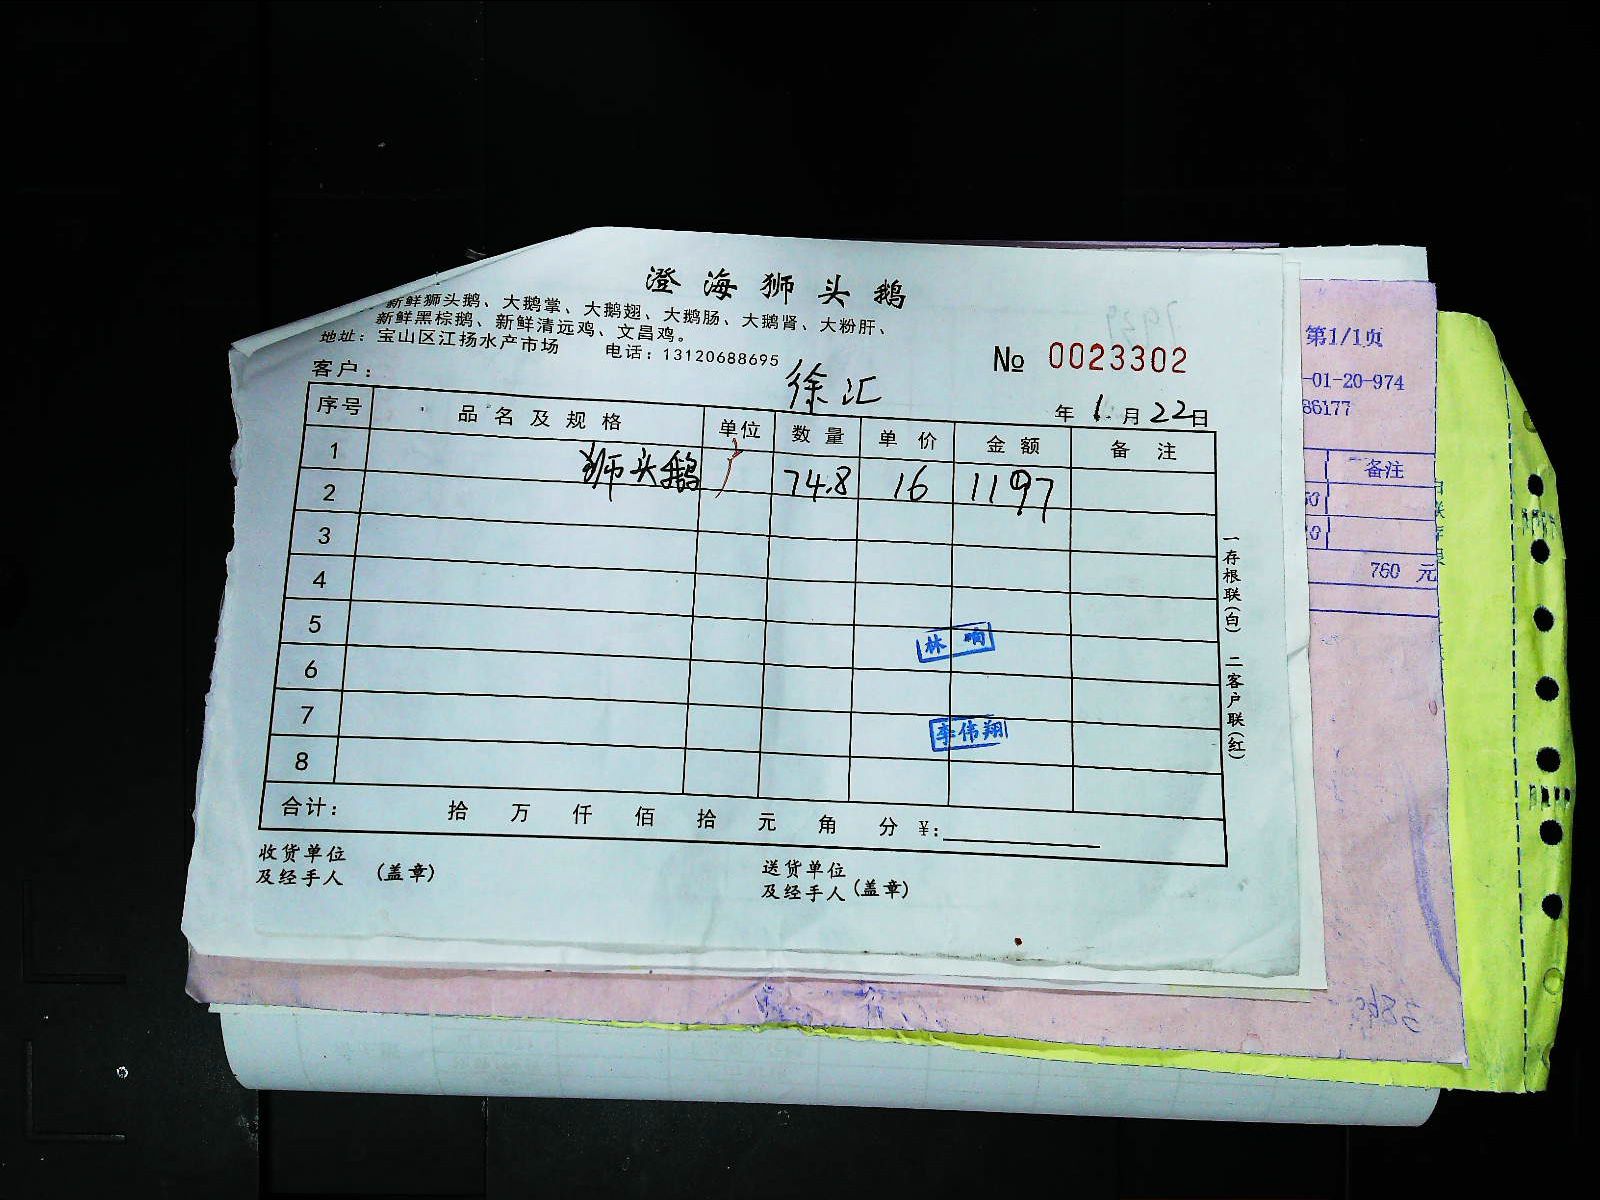 澄海狮头鹅
新鲜狮头鹅、大鹅掌、大鹅翅、大鹅肠、大鹅肾、大粉肝、
新鲜黑棕鹅、新鲜清远鸡、文昌鸡。
地址：宝山区江扬水产市场 电话：13120688695
№ 0023302
客户： 徐汇
年 1 月 22 日
序号 品名及规格 单位 数量 单价 金额 备注
1 狮头鹅 74.8 16 1197
2
3
4
5
林
6
7 李伟翔
8
合计： 拾 万 仟 佰 拾 元 角 分 ¥：
收货单位
及经手人 （盖章）
送货单位
及经手人（盖章）
一存根联（白） 二客户联（红）
第1/1页
-01-20-974
86177
备注
760 元